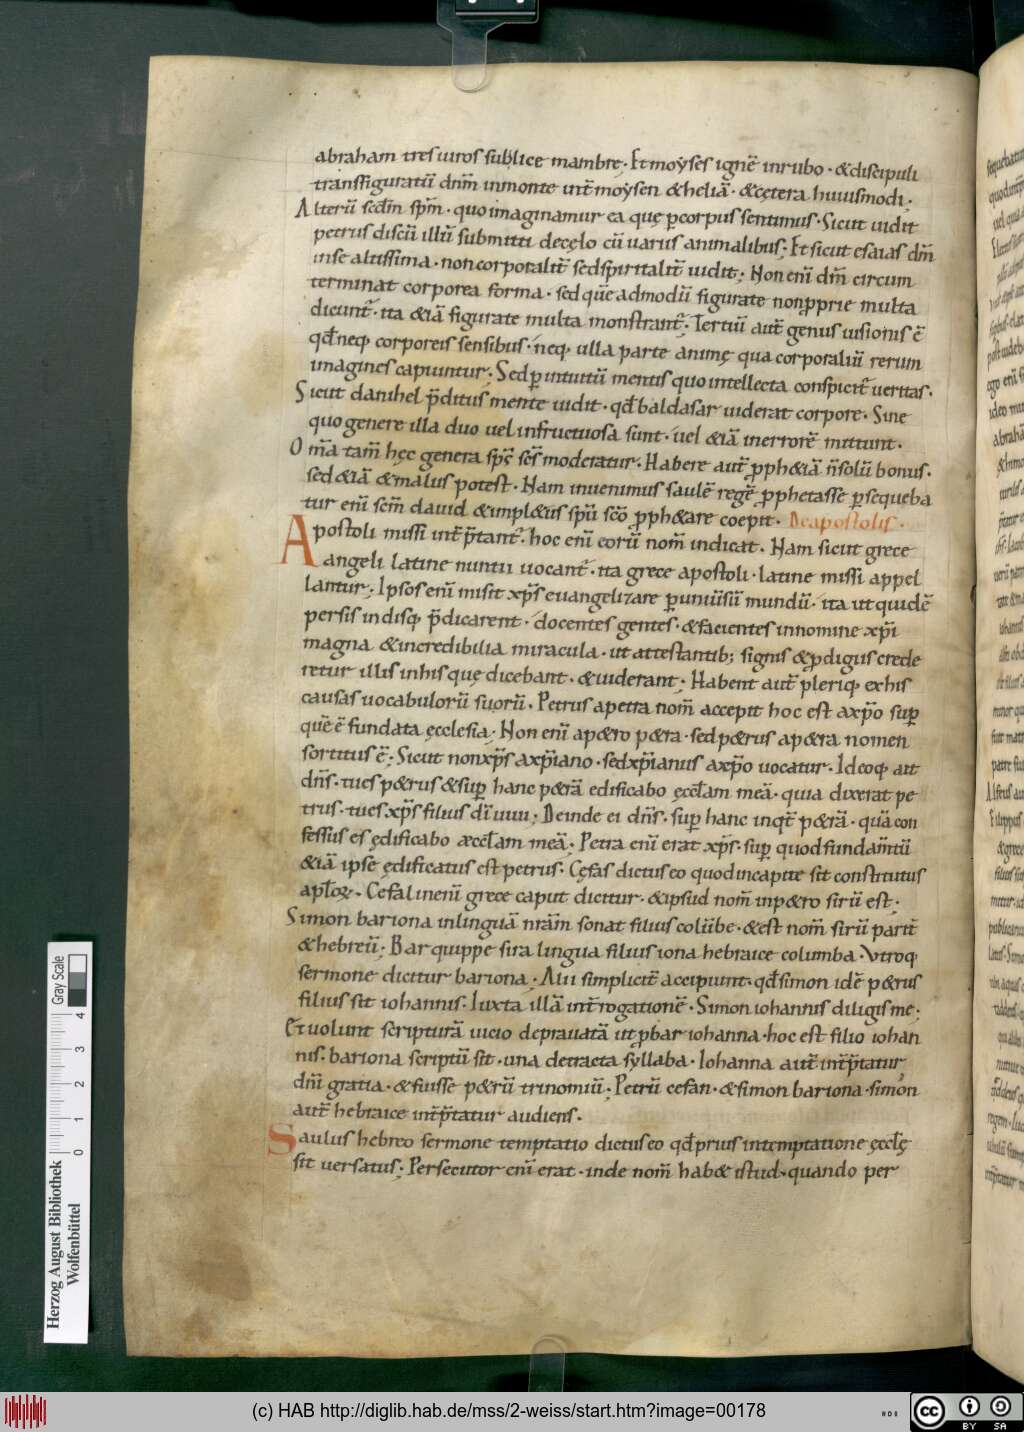 abraham tres uiros sublice mambre. Et moẏses ignē inrubo. &discipuli
transfiguratū dnm̄ inmonte int̄ moẏsen &heliā. &cętera huiusmodi.
Alterū scdm̄ spm̄. quo imaginamur ea quę p̱corpus sentimus. Sicut uidit
petrus discū illū submitti decęlo cū uariis animalibus; Et sicut esaias dm̄
inse altissima. non corporalit̄ sed spiritalit̄ uidit; Non enī dm̄ circum
terminat corporea forma. sed quēadmodū figurate non p̱prie multa
dicunt̄. ita &iā figurate multa monstrant̄; Tertiū aut̄ genus uisionis ē
qd̄ neq; corporeis sensibus. neq; ulla parte animę qua corporaliū rerum
imagines capiuntur; Sed p̱ intuitū mentis quo intellecta conspicit̄ ueritas.
Sicut danihel p̄ditus mente uidit. qd̄ baldasar uiderat corpore. Sine
quo genere illa duo uel infructuosa sunt. uel &iā inerrorē mittunt.
Om̄a tam̄ hęc genera sp̄s sc̄s moderatur. Habere aut̄ p̱ph&iā n̄ solū bonus.
sed &iā &malus potest. Nam inuenimus saulē regē p̱phetasse p̱sequeba
tur enī scm̄ dauid &impl&us spū sc̄o p̱ph&are coepit. De apostolis.
Apostoli missi int̄p̄tant̄. hoc enī eorū nom̄ indicat. Nam sicut grece
angeli latine nuntii uocant̄. ita grece apostoli. latine missi appel
lantur; Ipsos enī misit xp̄s euangelizare p̱ uniūsū mundū. ita ut quidē
persis indisq; p̄dicarent. docentes gentes. &facientes innomine xp̄i
magna &incredibilia miracula. ut attestantib; signis &p̱digiis crede
retur illis inhis quę dicebant. &uiderant; Habent aut̄ pleriq; exhis
causas uocabulorū suorū. Petrus apetra nom̄ accepit hoc est axp̄o sup̱
quē ē fundata ęcclesia; Non enī ap&ro p&ra. sed p&rus ap&ra nomen
sortitus ē; Sicut non xp̄s axp̄iano. sed xp̄ianus axp̄o uocatur. Ideoq; ait
dn̄s. tu es p&rus &sup̱ hanc p&rā edificabo ęccl̄am meā. quia dixerat pe
trus. tu es xp̄s filius dī uiui; Deinde ei dn̄s. sup̱ hanc inqt̄ p&rā. quā con
fessus es ędificabo æccl̄am meā; Petra enī erat xp̄s. sup̱ quod fundam̄tū
&iā ipse ędificatus est petrus. Cęfas dictus eo quod incapite sit constitutus
apl̄oꝝ. Cefalin enī grece caput dicitur. &ipsud nom̄ inp&ro sirū est;
Simon bariona inlinguā nr̄am sonat filius colūbe. &est nom̄ sirū parit̄
&hebreū; Bar quippe sira lingua filius iona hebraice columba. Vtroq;
sermone dicitur bariona; Alii simplicit̄ accipiunt. qd̄ simon idē p&rus
filius sit iohannis. Iuxta illā int̄rogationē. Simon iohannis diligis me;
Et uolunt scripturā uicio deprauatā ut p̱ bar iohanna. hoc est filio iohan
nis. bariona scriptū sit. una detracta sẏllaba. Iohanna aut̄ int̄p̄tatur,
dn̄i gratia. &fuisse p&rū trinomiū; Petrū cefan. &simon bariona. simon
aut̄ hebraice int̄p̄tatur audiens.
Saulus hebreo sermone temptatio dictus eo qd̄ prius intemptatione ęccl̄ę
sit uersatus; Persecutor enī erat. inde nom̄ hab& istud. quando per
Herzog August Bibliothek
Wolfenbüttel
0 1 2 3 4
Gray Scale
(c) HAB http://diglib.hab.de/mss/2-weiss/start.htm?image=00178
cc BY SA